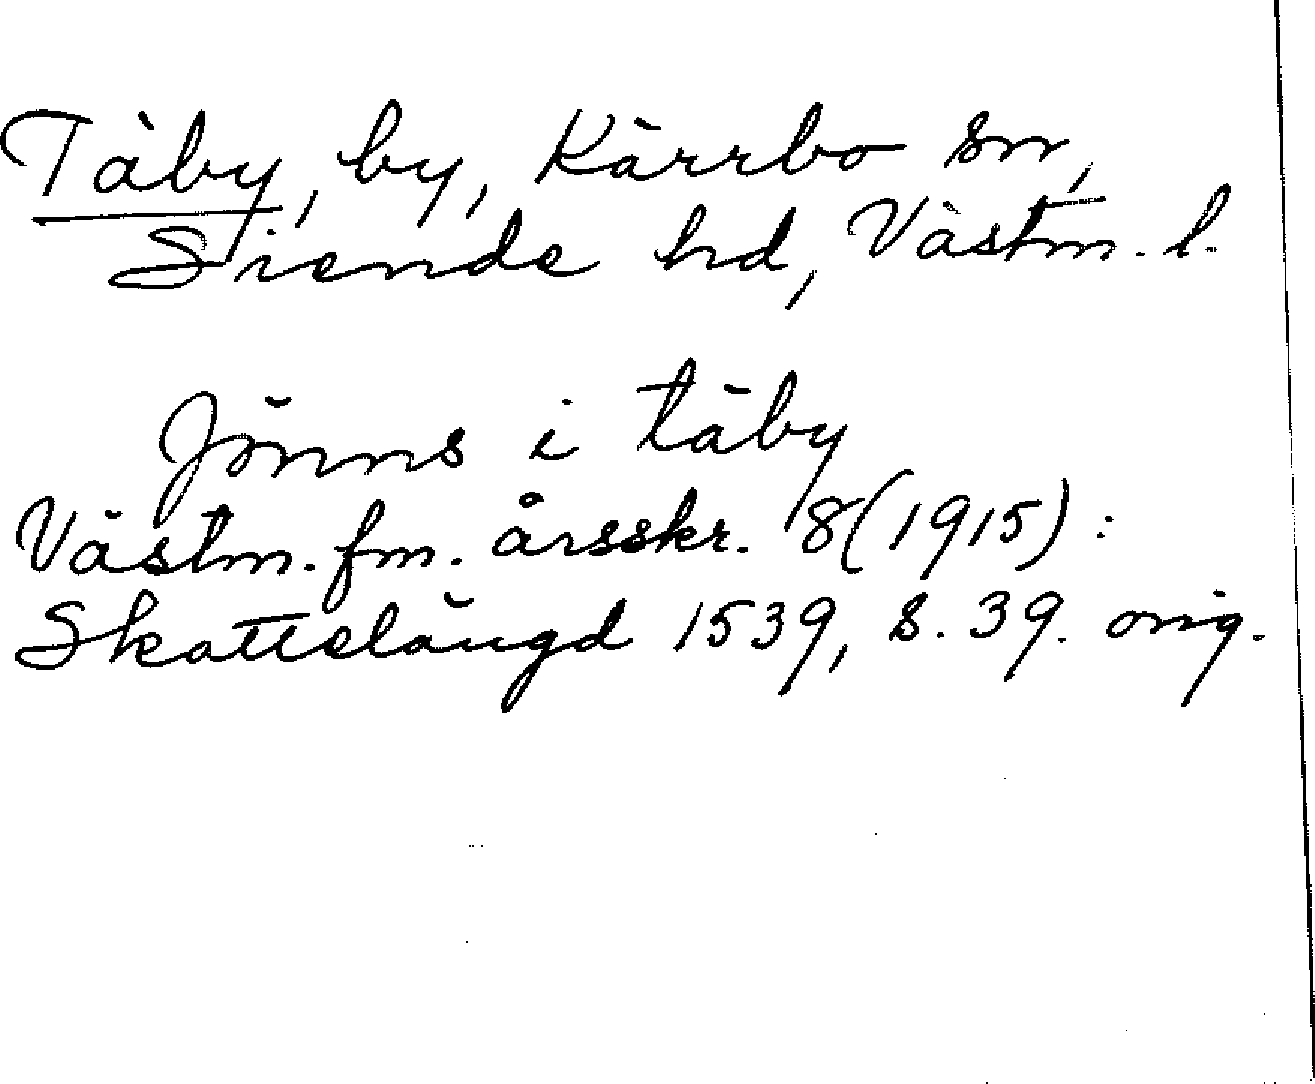 Täby, by, Kärrbo sn,
Siende hd, Västm. l.
Jönns i täby
Västm. fm. årsskr. 8 (1915):
Skattelängd 1539, s. 39. orig.